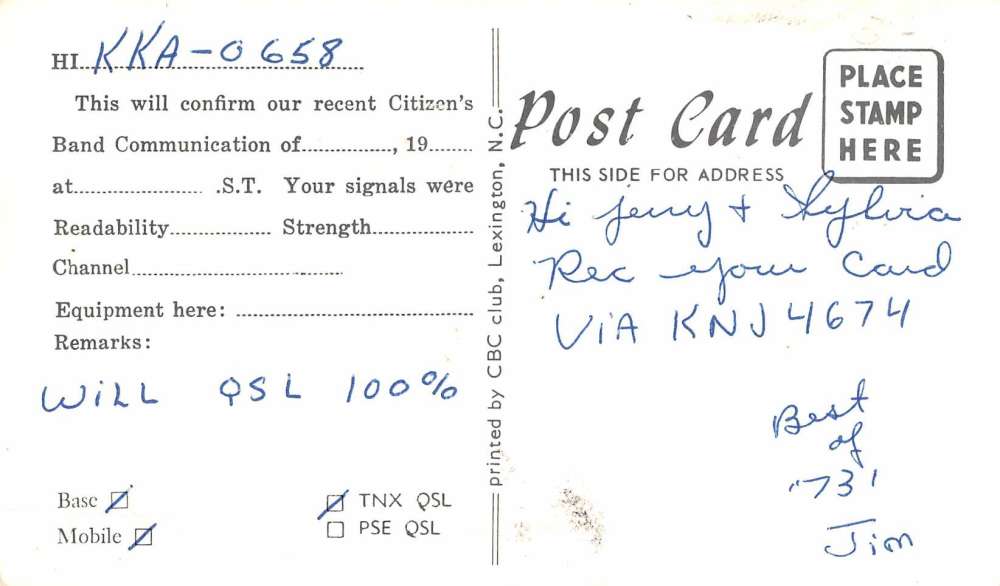 HI KKA-0658
This will confirm our recent Citizen's
Band Communication of..............., 19........
at..................... .S.T. Your signals were
Readability................. Strength.................
Channel...................................
Equipment here: ........................................
Remarks:
WiLL QSL 100%
Base
Mobile
TNX QSL
PSE QSL
printed by CBC club, Lexington, N.C.
Post Card
THIS SIDE FOR ADDRESS
PLACE
STAMP
HERE
Hi Jerry + Sylvia
Rec your Card
ViA KNJ4674
Best
of
'73'
Jim